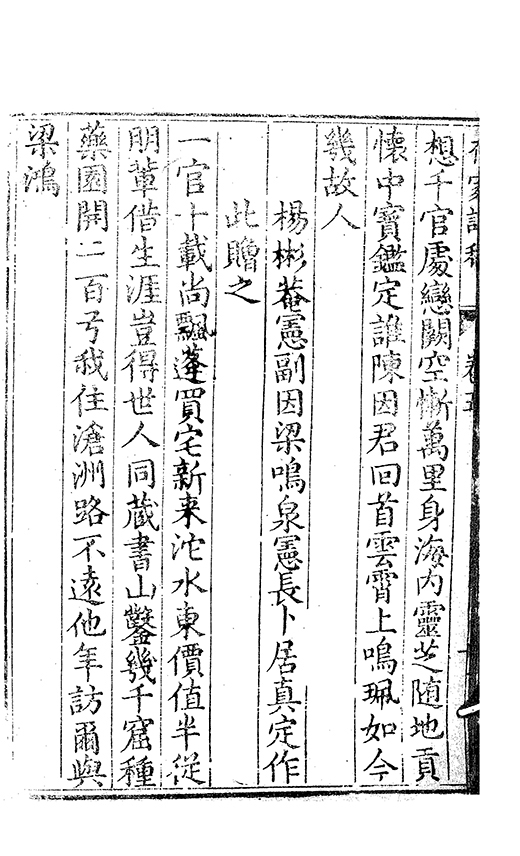 卷五
想千官處戀闕空慚萬里身海内靈芝随地貢
懐中寶鑑定誰陳因君回首雲霄上鳴珮如今
幾故人
楊彬菴憲副因梁鳴泉憲長卜居真定作
此贈之
一官十載尚飄蓬買宅新来沱水東價值半従
朋輩借生涯豈得世人同蔵書山鑿幾千窟種
藥園開二百弓我住滄洲路不遠他年訪爾與
梁鴻